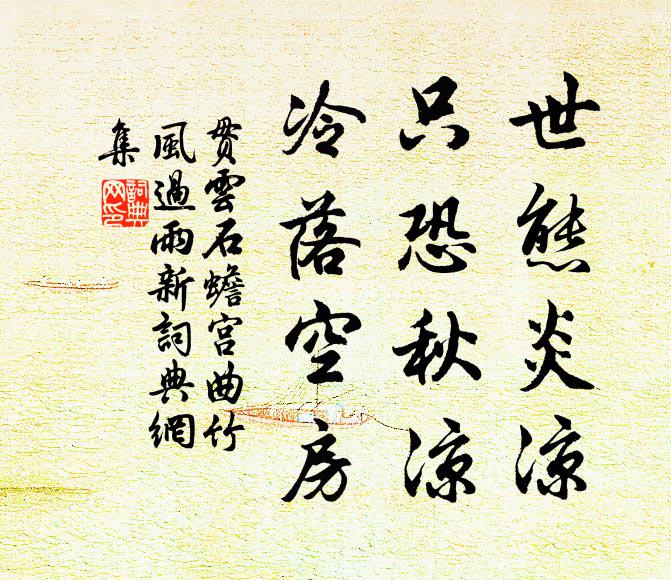 世態炎凉
只恐秋凉
冷落空房
貫雲石蟾宮曲竹
風過雨新詞典網
集
詞典
网印